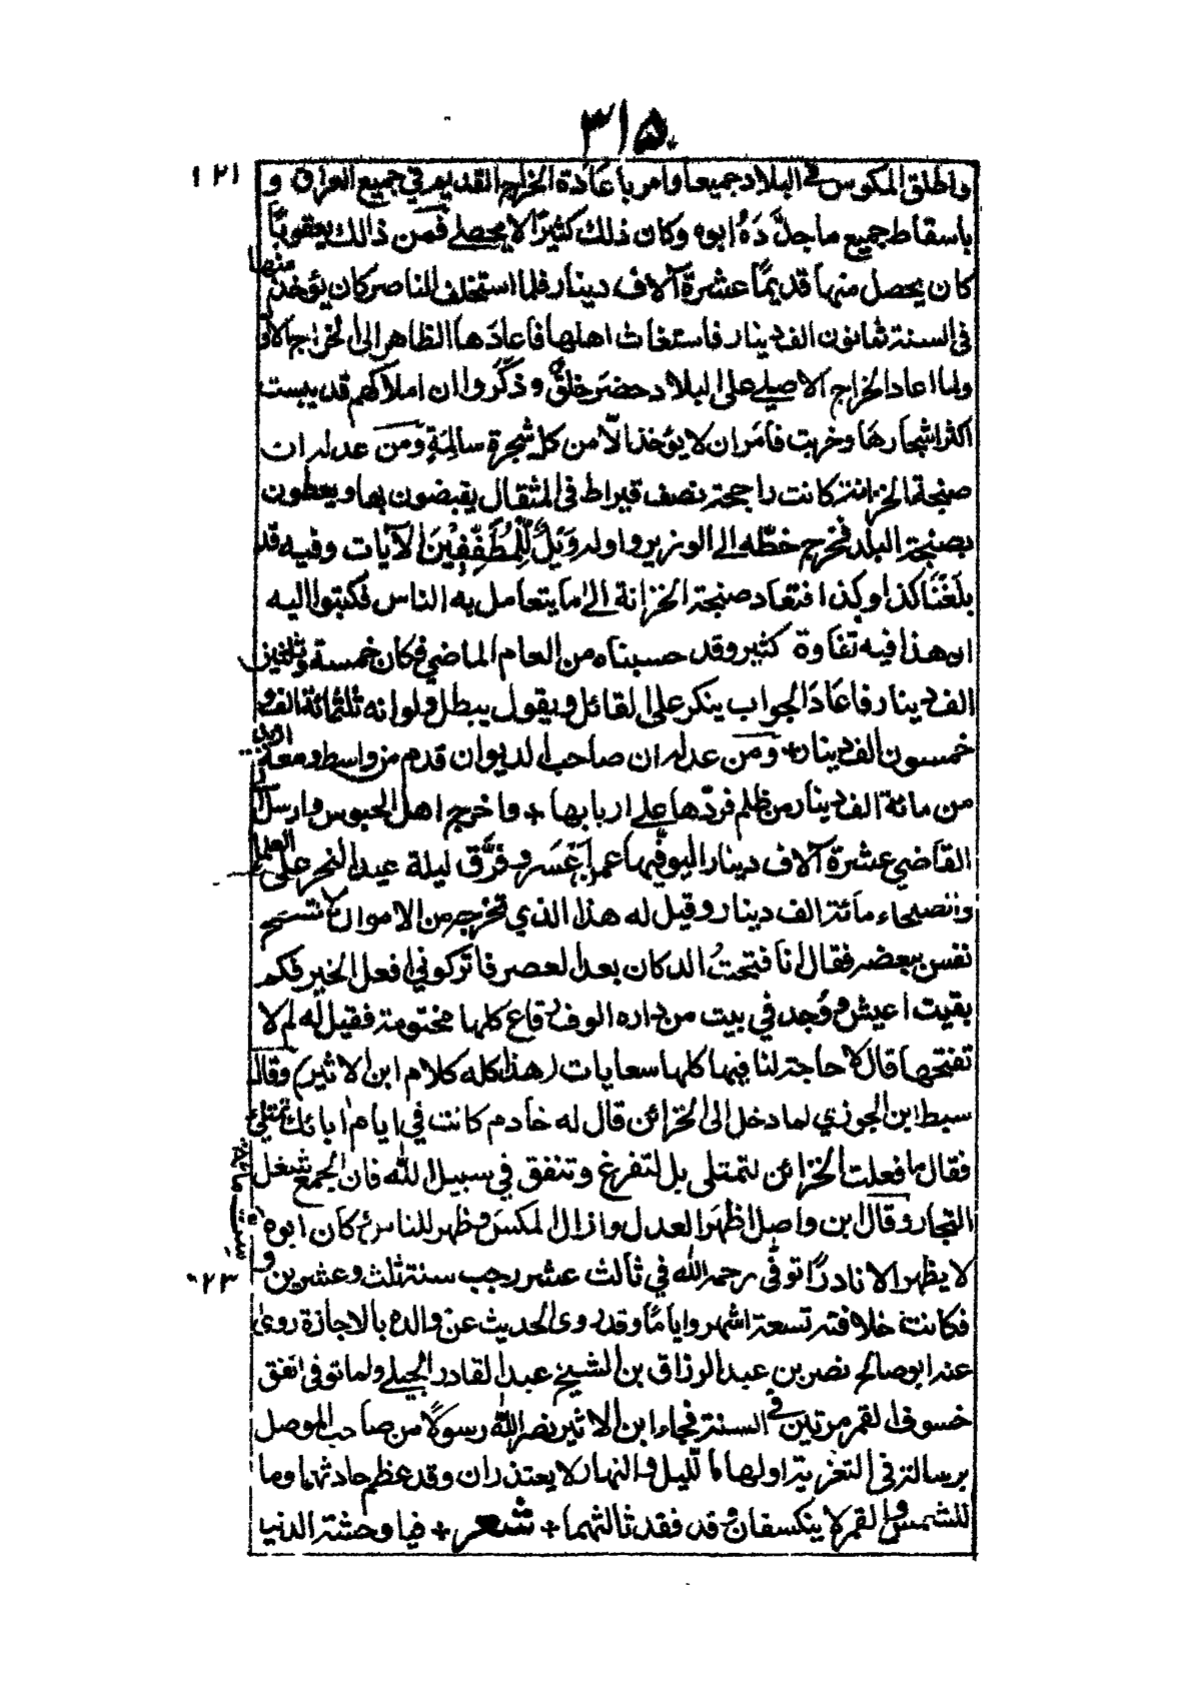 ٣١٥
واطلق المكوس في البلاد جميعا وامر باعادة الخراج القديم في جميع العراق و
باسقاط جميع ما جدَّدَهُ ابوه وكان ذلك كثيرًا لا يحصى فمن ذالك يعقوبًا
كان يحصل منها قديمًا عشرة آلاف دينار فلما استخلف الناصر كان يؤخذ منها
في السنة ثمانون الف دينار فاستغاث اهلها فاعادها الظاهر الى الخراج الاول
ولما اعاد الخراج الاصلي على البلاد حضر خلق وذكروا ان املاكهم قد يبست
اكثر اشجارها وخربت فامر ان لا يؤخذ الّا من كل شجرة سالمةٍ ومن عدله ان
صنجة الخزانة كانت راجحة نصف قيراط في المثقال يقبضون بها ويعطون
بصنجة البلد فخرج خطّه الى الوزير واوله وَيْلٌ لِّلْمُطَفِّفِيْنَ الآيات وفيه قد
بلَغَنَا كذا وكذا فتعاد صنجة الخزانة الى ما يتعامل به الناس فكتبوا اليه
ان هذا فيه تفاوة كثير وقد حسبناه من العام الماضي فكان خمسة وثلثين
الف دينار فاعَادَ الجواب ينكر على القائل ويقول يبطل ولو انه ثلثمائة الف و
خمسون الف دينار + ومن عدله ان صاحب الديوان قدم من واسط ومعه ازيد
من مائة الف دينار من ظلم فردّها على اربابها + واخرج اهل الحبوس وارسل الى
القاضي عشرة آلاف دينار ليوفيها عمن اَعْسَر وفَرَّق ليلة عيد النحر على العلماء
والصلحاء مائة الف دينار وقيل له هذا الذي تخرجه من الاموال لا تسمح
نفس ببعضه فقال انا فتحتُ الدكان بعد العصر فاتركوني افعل الخير فكم
بقيت اعيش ووُجد في بيت من داره الوف رقاع كلها مختومة فقيل له لم لا
تفتحها قال لا حاجة لنا فيها كلها سعايات (هذا كله كلام ابن الاثير) وقال
سبط ابن الجوزي لما دخل الى الخزائن قال له خادم كانت في ايام ابائك تمتلئ
فقال ما فعلت الخزائن لتمتلى بل لتفرغ وتنفق في سبيل الله فان الجمع شغل
التجار وقال ابن واصل اظهَر العدل وازال المكس وظهر للناس وكان ابوه
لا يظهر الا نادرًا توفّى رحمه الله في ثالث عشر رجب سنة ثلث وعشرين و
فكانت خلافته تسعة اشهر وايامًا وقد روى الحديث عن والده بالاجازة روى
عنه ابو صالح نصر بن عبد الرزاق بن الشيخ عبد القادر الجيلي ولما توفى اتفق
خسوف القمر مرتين في السنة فجاء ابن الاثير نصر الله رسولًا من صاحب الموصل
برسالة في التعزية اولها ما لليل والنهار لا يعتذران وقد عظم حادثهما وما
للشمس والقمر لا ينكسفان وقد فقد ثالثهما + شعر + فيا وحشة الدنيا